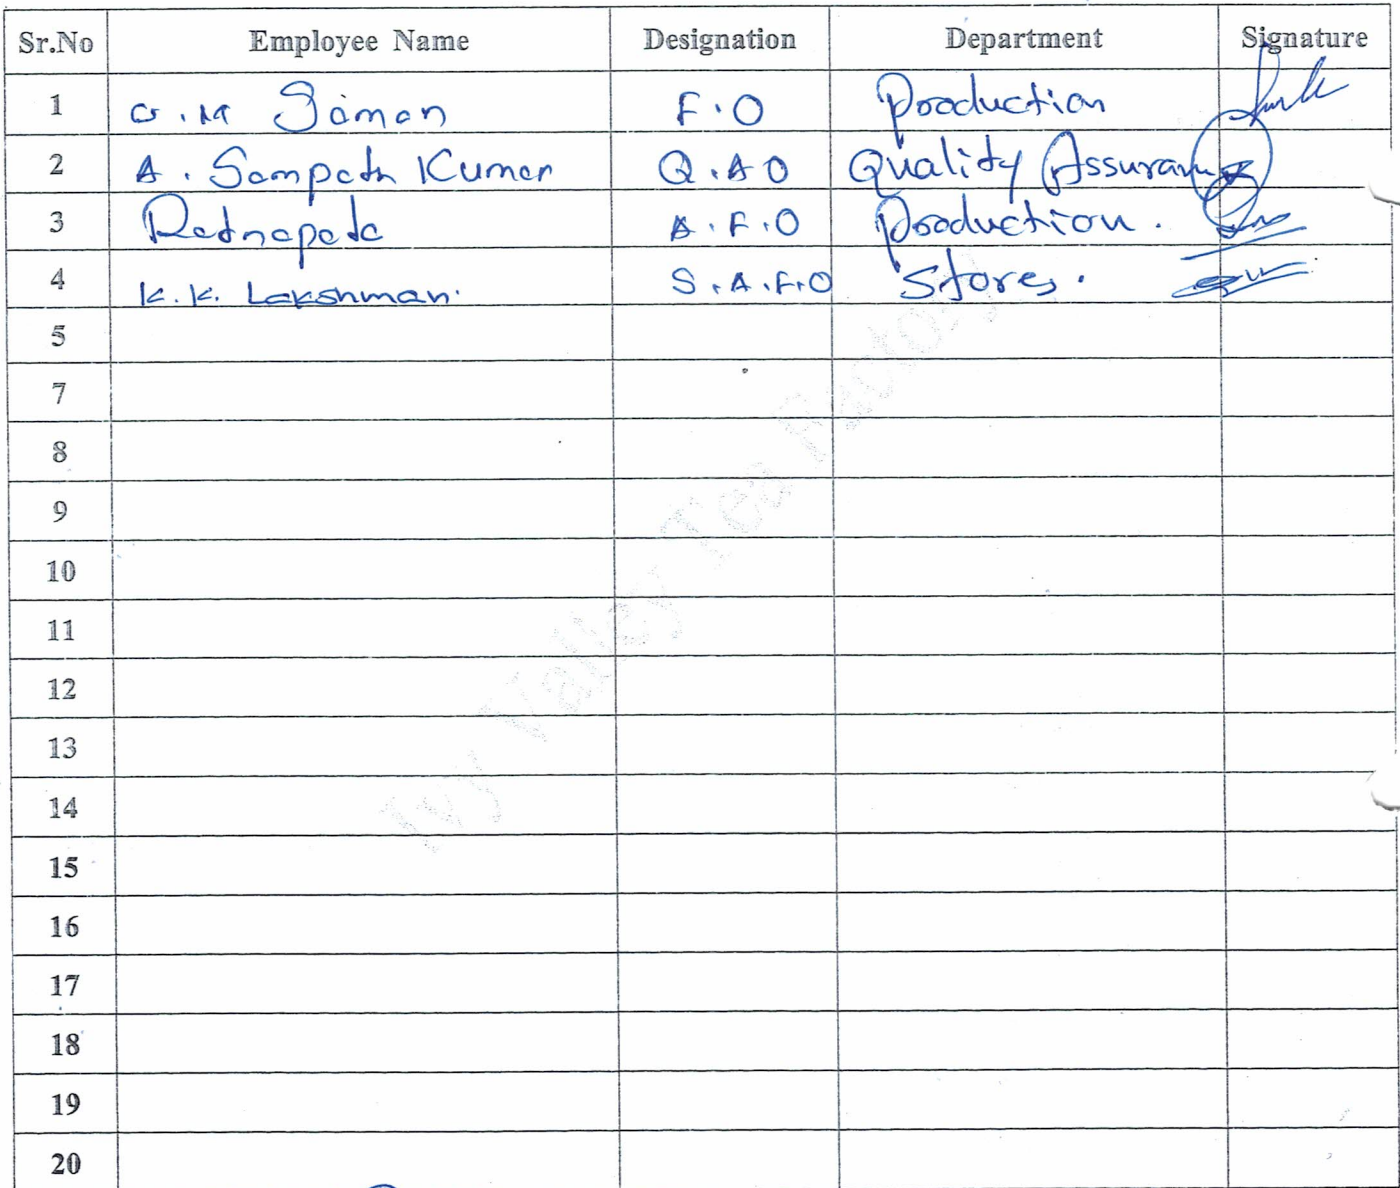 Sr.No Employee Name Designation Department Signature
1 G.M Saman F.O Production
2 A. Sampath Kumar Q.A O Quality Assurance
3 Ratnapala A.F.O Production.
4 K.K. Lakshman. S.A.F.O Stores.
5
7
8
9
10
11
12
13
14
15
16
17
18
19
20
Ivy Valley Tea Factory